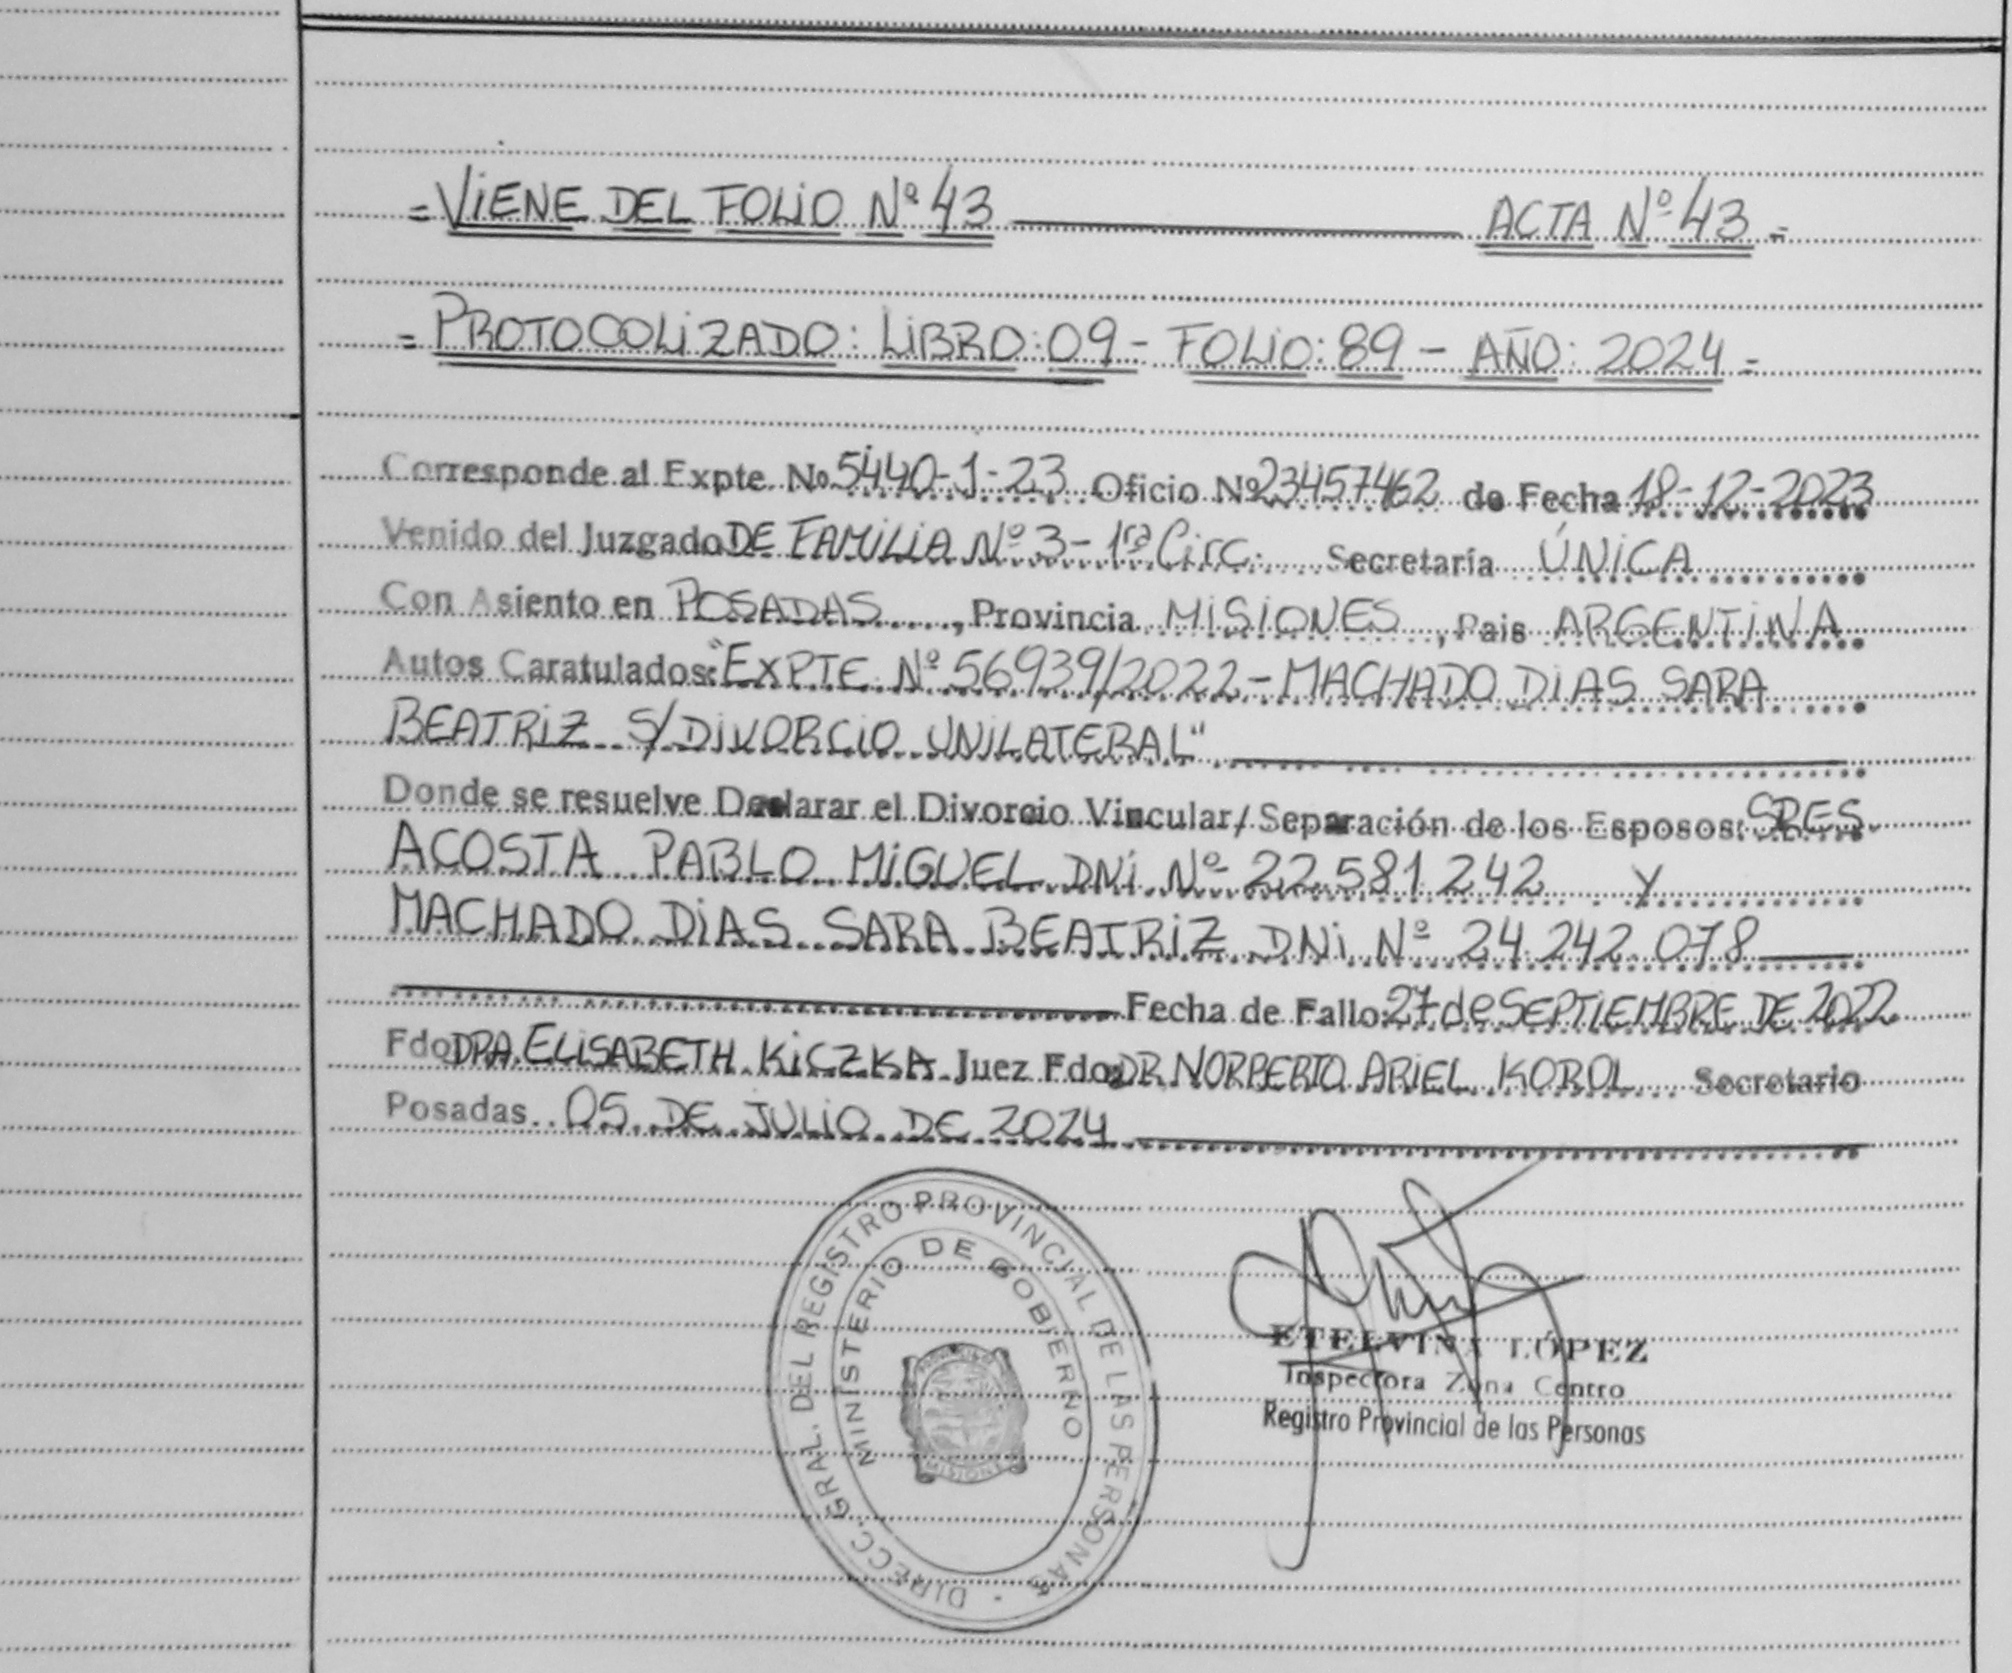 =VIENE DEL FOLIO Nº 43 ACTA Nº 43=
=PROTOCOLIZADO: LIBRO: 09 - FOLIO: 89 - AÑO: 2024=
Corresponde al Expte. Nº 5440-1-23 Oficio Nº 23457462 de Fecha 18-12-2023
Venido del Juzgado DE FAMILIA Nº 3 - 1ra Circ. Secretaría ÚNICA
Con Asiento en POSADAS, Provincia MISIONES, Pais ARGENTINA
Autos Caratulados: "EXPTE Nº 56939/2022 - MACHADO DIAS SARA
BEATRIZ S/DIVORCIO UNILATERAL"
Donde se resuelve Declarar el Divorcio Vincular/Separación de los Esposos: SRES.
ACOSTA PABLO MIGUEL DNI Nº 22.581.242 Y
MACHADO DIAS SARA BEATRIZ DNI Nº 24.242.078
Fecha de Fallo: 27 de SEPTIEMBRE DE 2022
Fdo DRA. ELISABETH KICZKA Juez Fdo: DR NORBERTO ARIEL KOROL Secretario
Posadas 05 DE JULIO DE 2024
DIRECC. GRAL. DEL REGISTRO PROVINCIAL DE LAS PERSONAS
MINISTERIO DE GOBIERNO
MISIONES
ETELVINA LÓPEZ
Inspectora Zona Centro
Registro Provincial de las Personas